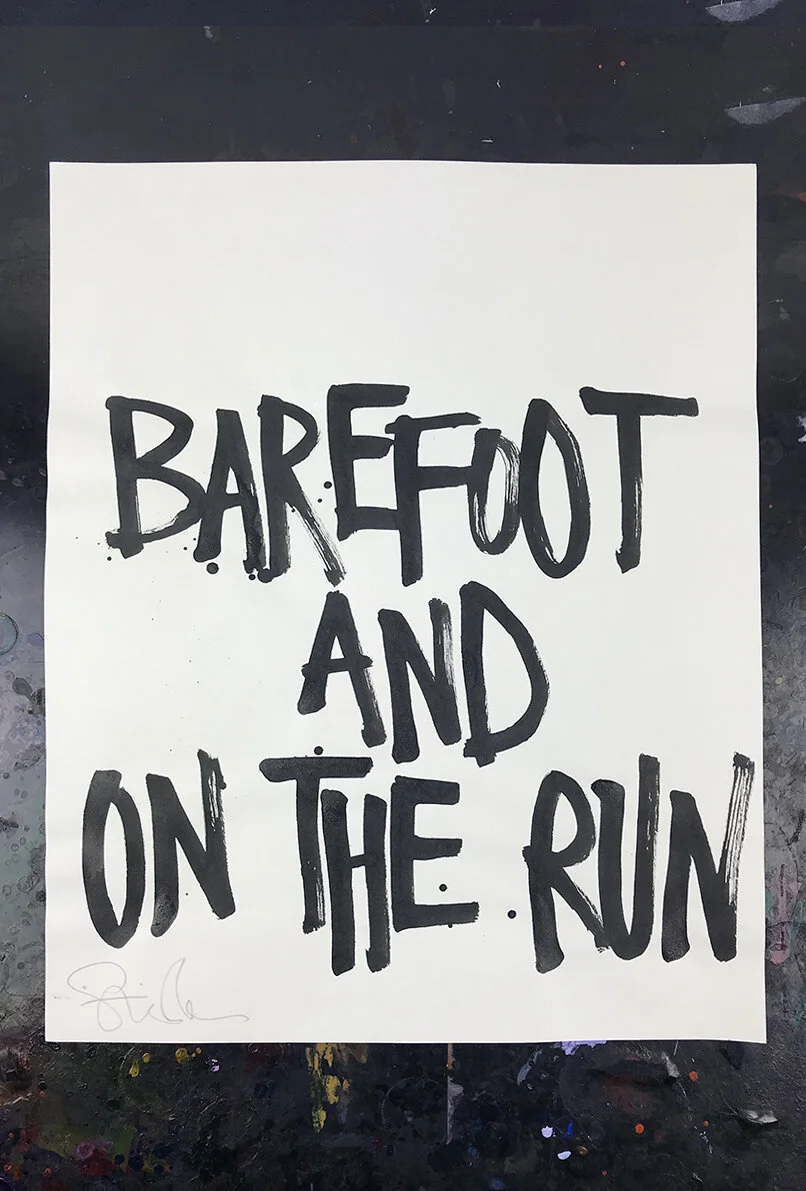 BAREFOOT
AND
ON THE RUN